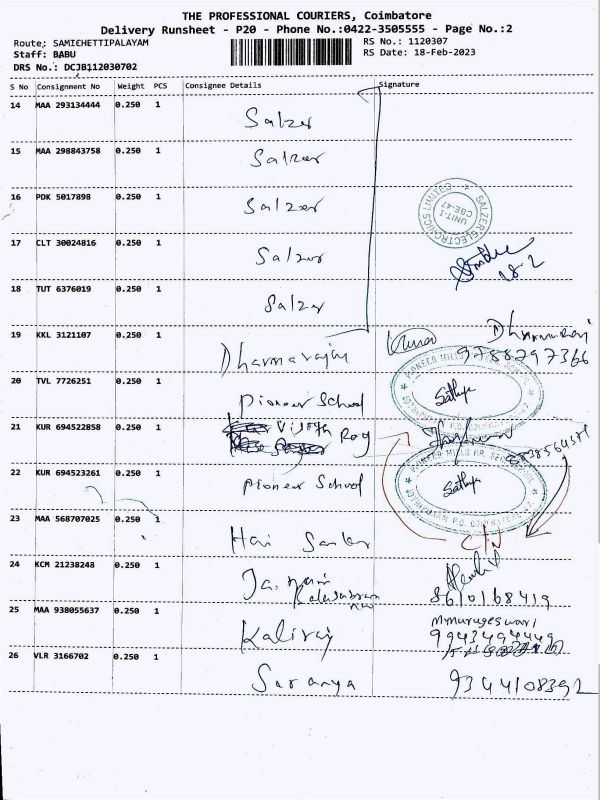 THE PROFESSIONAL COURIERS, Coimbatore
Delivery Runsheet - P20 - Phone No.:0422-3505555 - Page No.:2
Route: SAMICHETTIPALAYAM
RS No.: 1120307
Staff: BABU
RS Date: 18-Feb-2023
DRS No.: DCJB112030702
S No Consignment No Weight PCS Consignee Details Signature
14 MAA 293134444 0.250 1 Salzer
15 MAA 298843758 0.250 1 Salzer
16 PDK 5017898 0.250 1 Salzer
SALZER ELECTRONICS LIMITED
UNIT-I
CBE-47
17 CLT 30024816 0.250 1 Salzer
18-2
18 TUT 6376019 0.250 1 Salzer
19 KKL 3121107 0.250 1 Dharmarajan
Kumar
9788297366
20 TVL 7726251 0.250 1 Pioneer School
Sathya
21 KUR 694522858 0.250 1 Roy
22 KUR 694523261 0.250 1 Pioneer School
Sathya
23 MAA 568707025 0.250 1 Hari
C/N
24 KCM 21238248 0.250 1
8610168419
25 MAA 938055637 0.250 1 Kaliraj
Mmurugeswari
9943494449
26 VLR 3166702 0.250 1 Saranya
9344108392